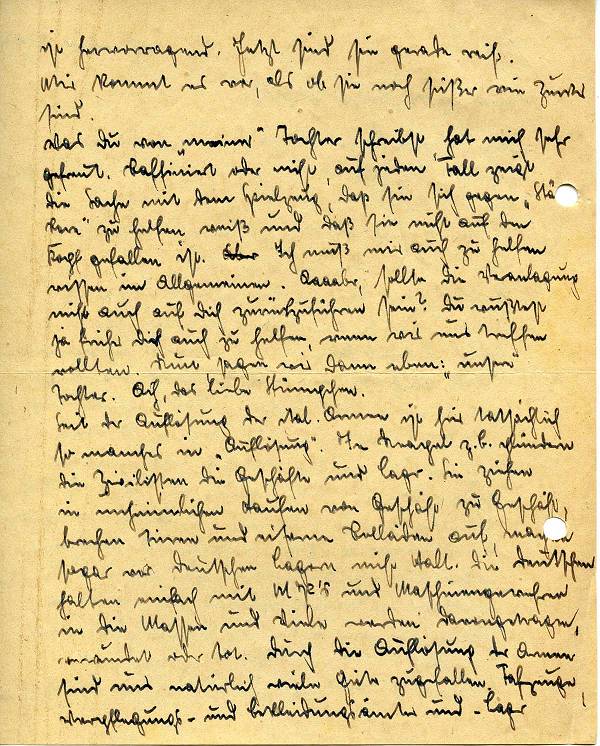 ist hervorragend. Jetzt sind sie gerade reif.
Mir kommt es vor, als ob sie noch süßer wie Zucker
sind.
Was Du von „meiner" Tochter schreibst hat mich sehr
gefreut. Raffiniert oder nicht, auf jeden Fall zeigt
die Sache mit dem Spielzeug, daß sie sich gegen „Stä
rkere" zu helfen weiß und daß sie nicht auf den
Kopf gefallen ist. Ich muß mir auch zu helfen
wissen im Allgemeinen. Aaaabr, sollte die Veranlagung
nicht auch auf Dich zurückzuführen sein? Du wußtest
ja früher Dich auch zu helfen, wenn wir uns treffen
wollten. Nun sagen wir dann eben: „unsere"
Tochter. Ach, das liebe Stümpchen.
Seit der Auflösung der ital. Armee ist hier tatsächlich
so manches in „Auflösung". In Neapel z.b. plündern
die Zivilisten die Geschäfte und Lager. Sie ziehen
in unheimlichen Haufen von Geschäft zu Geschäft,
brechen Türen und eiserne Rolläden auf, machen
sogar vor deutschen Lagern nicht Halt. Die Deutschen
halten einfach mit und Maschinengewehren
in die Massen und Viele werden davongetragen,
verwundet oder tot. Durch die Auflösung der Armee
sind uns natürlich viele Güter zugefallen. Fahrzeuge,
Verpflegungs- und Bekleidungsämter und -lager